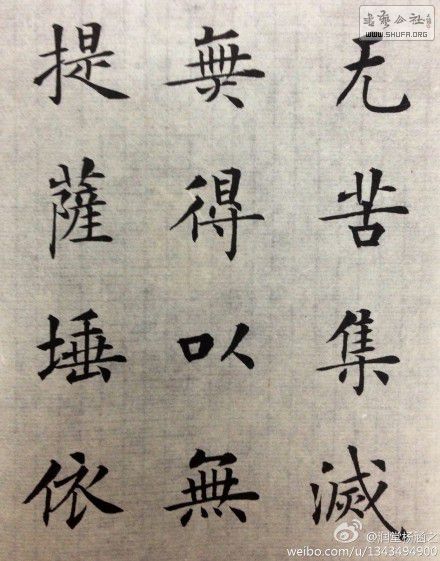 无苦集滅
無得以無
提薩埵依
書藝公社
WWW.SHUFA.ORG
@润堂杨涵之
weibo.com/u/1343494900